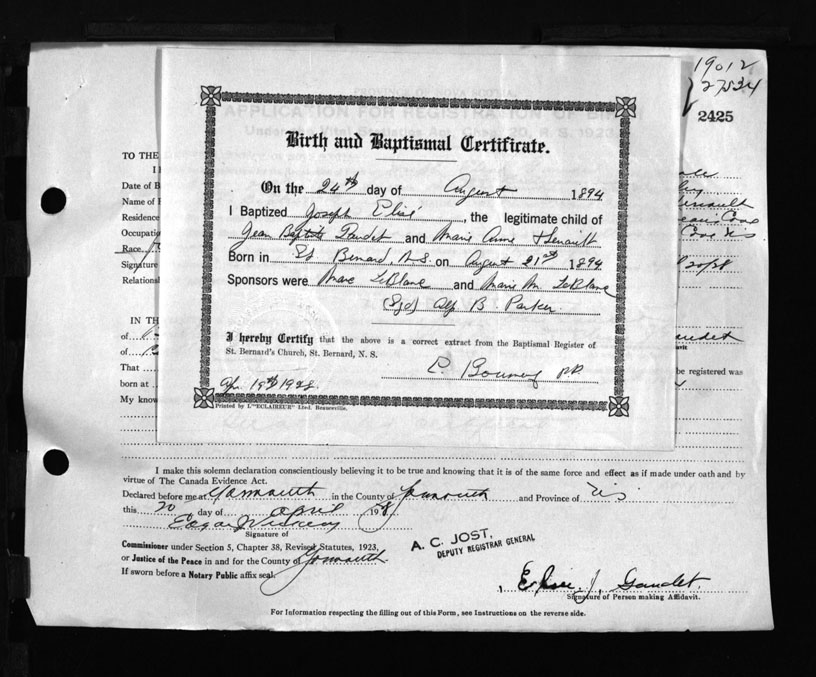 19012
27534
2425
PROVINCE OF NOVA SCOTIA
APPLICATION FOR REGISTRATION OF BI
Under Vital Statistics Act, Chap. 20, R. S. 1923
Birth and Baptismal Certificate.
TO THE
On the 24th day of August 1894
Date of B
I Baptized Joseph Elisé, the legitimate child of
Name of
Residence
Jean Baptiste Gaudet and Marie Anne
Occupatio
Race
Born in St Bernard N.S. on August 21st 1894
Signature
Relational
Sponsors were Marc LeBlanc and Marie M. LeBlanc
(Sgd) Alf B Parker
IN TH
I hereby Certify that the above is a correct extract from the Baptismal Register of
St. Bernard's Church, St. Bernard, N. S.
of
of
That
be registered was
born at
Ap. 19th 1928.
My know
Printed by L'"ECLAIREUR" Lted. Beauceville.
I make this solemn declaration conscientiously believing it to be true and knowing that it is of the same force and effect as if made under oath and by
virtue of The Canada Evidence Act.
Declared before me at Yarmouth in the County of Yarmouth and Province of N.S.
this 20 day of April 19
Edgar
Signature of
Commissioner under Section 5, Chapter 38, Revised Statutes, 1923,
or Justice of the Peace in and for the County of Yarmouth
If sworn before a Notary Public affix seal.
A. C. JOST,
DEPUTY REGISTRAR GENERAL
Elisee J. Gaudet
Signature of Person making Affidavit.
For Information respecting the filling out of this Form, see Instructions on the reverse side.